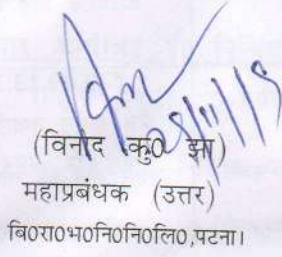 (विनोद कु0 झा)
महाप्रबंधक (उत्तर)
बि0रा0भ0नि0नि0लि0,पटना।